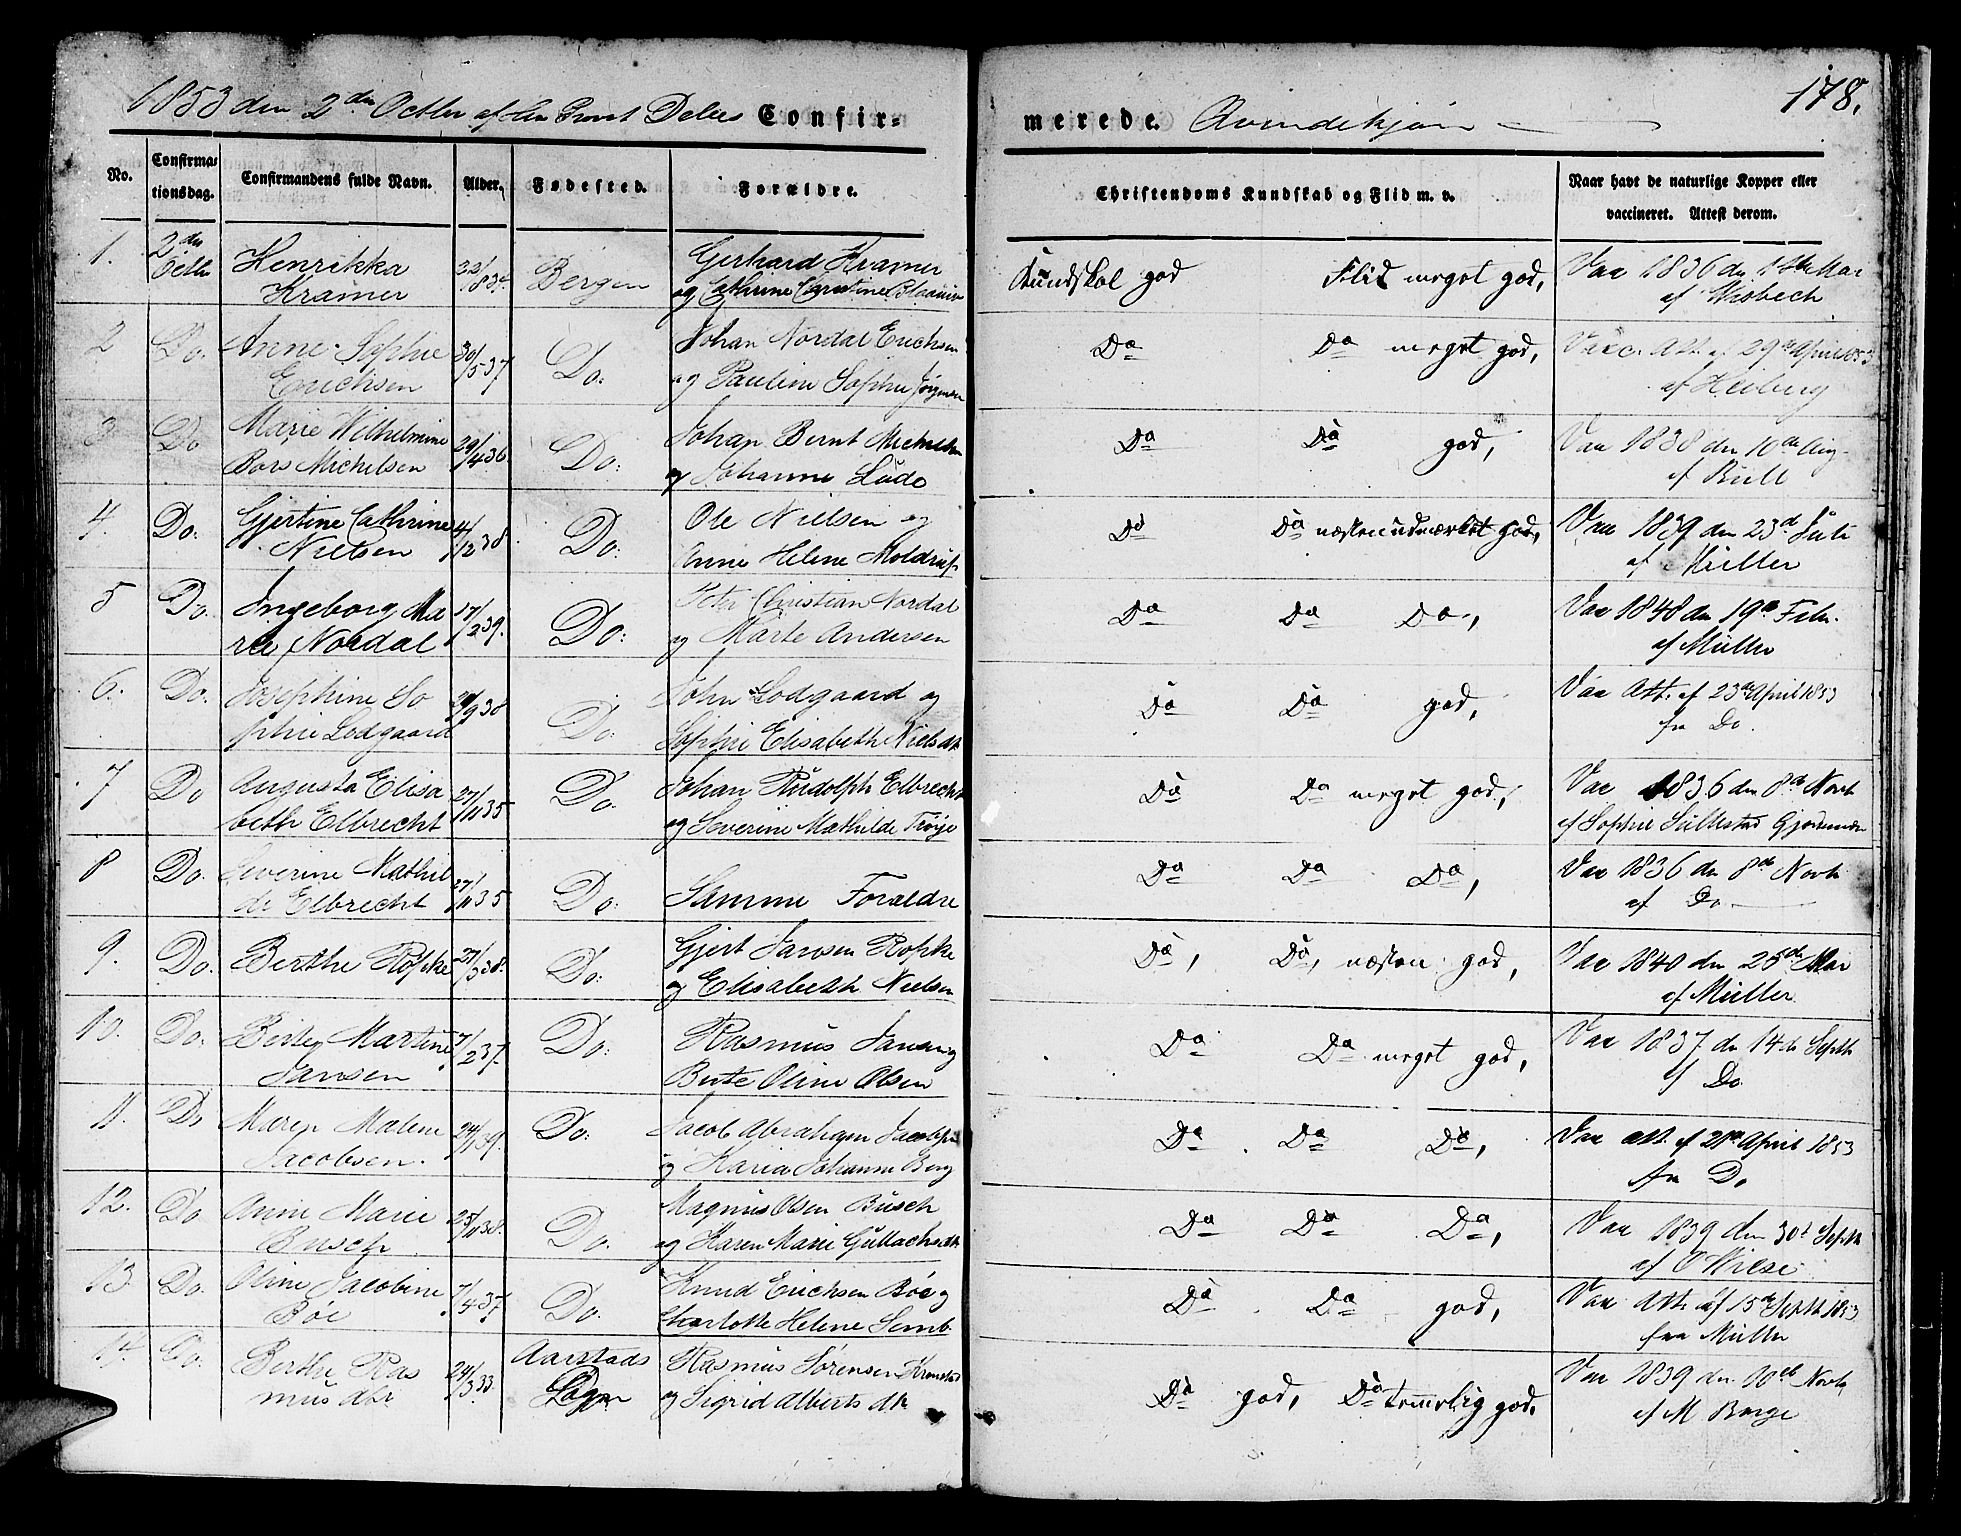 178.
1853 den 2den Octbr af Hr Provst Confir-
merede. Qvindekjøn
No. Confirma-
tionsdag. Confirmandens fulde Navn. Alder. Fødested. Forældre. Christendoms Kundskab og Flid m. v. Naar havt de naturlige Kopper eller
vaccineret. Attest derom.
1. 2den Henrikka Gerhard Kramer Vac 1836 den Mai
Octbr Kramer Bergen og Cathrine Kundskab god Flid meget god, af Wisbech
2 Do. Anne Sophie 30/5 37 Do. Johan Nordal Erichsen Do Do meget god, Vacc. Att. af 29de April 1853
Erichsen og Pauline Sophie Jørgensen af Heiberg
3 Do Marie Wilhelmine 29/4 36. Do. Johan Bernt Michelsen Do Do god, Vac 1838 den 10de Aug.
Bars Michelsen og Johanne Lude af Bull
4. Do. Gjertine Cathrine 4/12 38 Do. Ole Nielsen og Do Do næsten udmærket god, Vac 1839 den 23d Juli
Nielsen Anne Helene Moldrup af Müller
5 Do. Ingeborg Ma 17/2 39. Do. Peter Christian Nordal Do Do Do, Vac 1848 den 19de Febr.
rie Nordal og Marte Andersen af Müller
6. Do. Josephine So 9 38 Do. John Lodgaard og Do Do god, Vac Att. af 23de April 1853
phie Lodgaard Sophie Elisabeth Nielsdtr fra Do.
7 Do Augusta Elisa 27/11 35 Do. Johan Rudolph Elbrecht Do Do meget god, Vac 1836 den 8de Novb
beth Elbrecht og Severine Mathilde Trøje af Sophie Sullestad Gjordemoder
8 Do. Severine Mathil 27/11 35 Do. Samme Forældre Do Do Do, Vac 1836 den 8de Novb
de Elbrecht af Do
9. Do. Berthe Röpke 27/3 38. Do. Gjert Jansen Röpke Do, Do, næsten god, Vac 1840 den 25de Mai
og Elisabeth Nielsen af Müller
10. Do. Birte Martine 7/2 37. Do. Rasmus Jansen og Do Do meget god, Vac 1837 den 14de Septb
Jansen Birte Oline Olsen af Do
11. Do Maren Malene 24/1 39. Do. Jacob Abraham Jacobsen Do Do Do, Vac att. af April 1853
Jacobsen. og Karia Johanne Berg fra Do
12. Do Anne Marie 25/11 38. Do. Magnus Olsen Busch Do Do Do, Vac 1839 den 30te Septb
Busch og Karen Marie Gullachsdtr af O Wiese
13. Do. Oline Jacobine 7/4 37. Do. Knud Erichsen Böe og Do Do god, Vac Att. af 15de Septb 1853
Böe Charlotte Helene Semb fra Müller
14. Do. Berthe Ras 24/3 33. Aarstads Rasmus Sørensen Kronstad Do god, Do temmelig god. Vac 1839 den 10de Novb
mus dtr Sogn og Sigrid Alberts dtr af M Borge